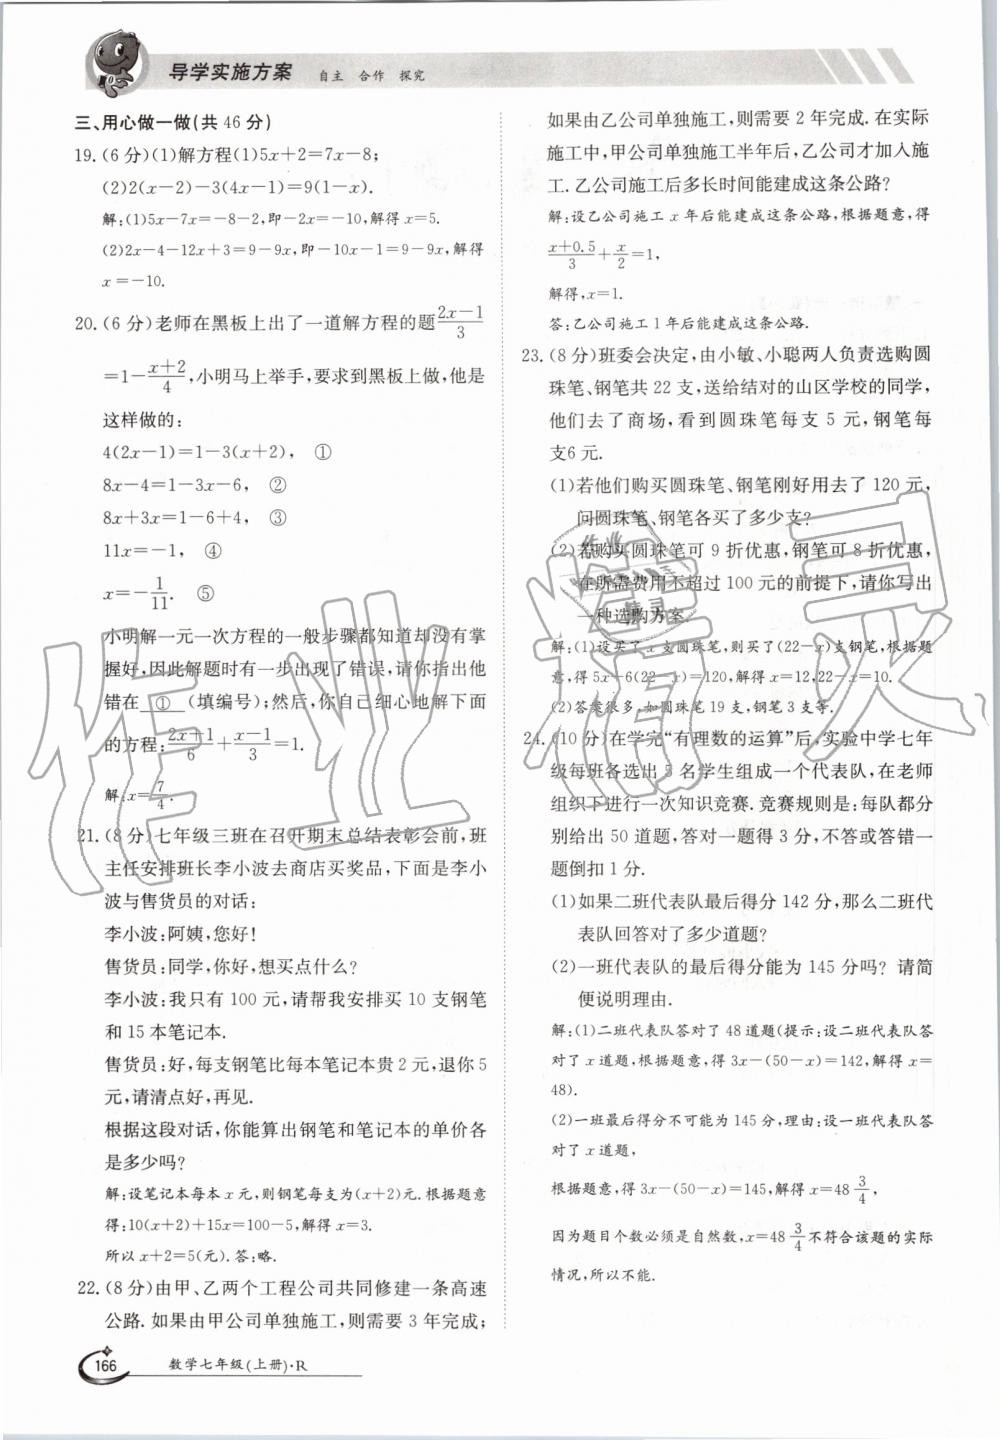 导学实施方案 自主 合作 探究
三、用心做一做(共 46 分)
19.(6 分)(1)解方程(1)5x+2=7x-8;
(2)2(x-2)-3(4x-1)=9(1-x).
解:(1)5x-7x=-8-2,即-2x=-10,解得 x=5.
(2)2x-4-12x+3=9-9x,即-10x-1=9-9x,解得
x=-10.
20.(6 分)老师在黑板上出了一道解方程的题(2x-1)/3
=1-(x+2)/4,小明马上举手,要求到黑板上做,他是
这样做的:
4(2x-1)=1-3(x+2), ①
8x-4=1-3x-6, ②
8x+3x=1-6+4, ③
11x=-1, ④
x=-1/11. ⑤
小明解一元一次方程的一般步骤都知道却没有掌
握好,因此解题时有一步出现了错误,请你指出他
错在 ① (填编号);然后,你自己细心地解下面
的方程:(2x+1)/6+(x-1)/3=1.
解:x=7/4.
21.(8 分)七年级三班在召开期末总结表彰会前,班
主任安排班长李小波去商店买奖品,下面是李小
波与售货员的对话:
李小波:阿姨,您好!
售货员:同学,你好,想买点什么?
李小波:我只有 100 元,请帮我安排买 10 支钢笔
和 15 本笔记本.
售货员:好,每支钢笔比每本笔记本贵 2 元,退你 5
元,请清点好,再见.
根据这段对话,你能算出钢笔和笔记本的单价各
是多少吗?
解:设笔记本每本 x 元,则钢笔每支为(x+2)元.根据题意
得:10(x+2)+15x=100-5,解得 x=3.
所以 x+2=5(元).答:略.
22.(8 分)由甲、乙两个工程公司共同修建一条高速
公路.如果由甲公司单独施工,则需要 3 年完成;
如果由乙公司单独施工,则需要 2 年完成.在实际
施工中,甲公司单独施工半年后,乙公司才加入施
工.乙公司施工后多长时间能建成这条公路?
解:设乙公司施工 x 年后能建成这条公路,根据题意,得
(x+0.5)/3+x/2=1,
解得,x=1.
答:乙公司施工 1 年后能建成这条公路.
23.(8 分)班委会决定,由小敏、小聪两人负责选购圆
珠笔、钢笔共 22 支,送给结对的山区学校的同学,
他们去了商场,看到圆珠笔每支 5 元,钢笔每
支6 元.
(1)若他们购买圆珠笔、钢笔刚好用去了 120 元,
问圆珠笔、钢笔各买了多少支?
(2)若购买圆珠笔可 9 折优惠,钢笔可 8 折优惠,
在所需费用不超过 100 元的前提下,请你写出
一种选购方案.
解:(1)设买了 x 支圆珠笔,则买了(22-x)支钢笔,根据题
意,得 5x+6(22-x)=120,解得 x=12,22-x=10.
(2)答案很多,如圆珠笔 19 支,钢笔 3 支等.
24.(10 分)在学完“有理数的运算”后,实验中学七年
级每班各选出 5 名学生组成一个代表队,在老师
组织下进行一次知识竞赛.竞赛规则是:每队都分
别给出 50 道题,答对一题得 3 分,不答或答错一
题倒扣 1 分.
(1)如果二班代表队最后得分 142 分,那么二班代
表队回答对了多少道题?
(2)一班代表队的最后得分能为 145 分吗? 请简
便说明理由.
解:(1)二班代表队答对了 48 道题(提示:设二班代表队答
对了 x 道题,根据题意,得 3x-(50-x)=142,解得 x=
48).
(2)一班最后得分不可能为 145 分,理由:设一班代表队答
对了 x 道题,
根据题意,得 3x-(50-x)=145,解得 x=48 3/4,
因为题目个数必须是自然数,x=48 3/4 不符合该题的实际
情况,所以不能.
166 数学七年级(上册)·R
作业精灵
作业
精灵